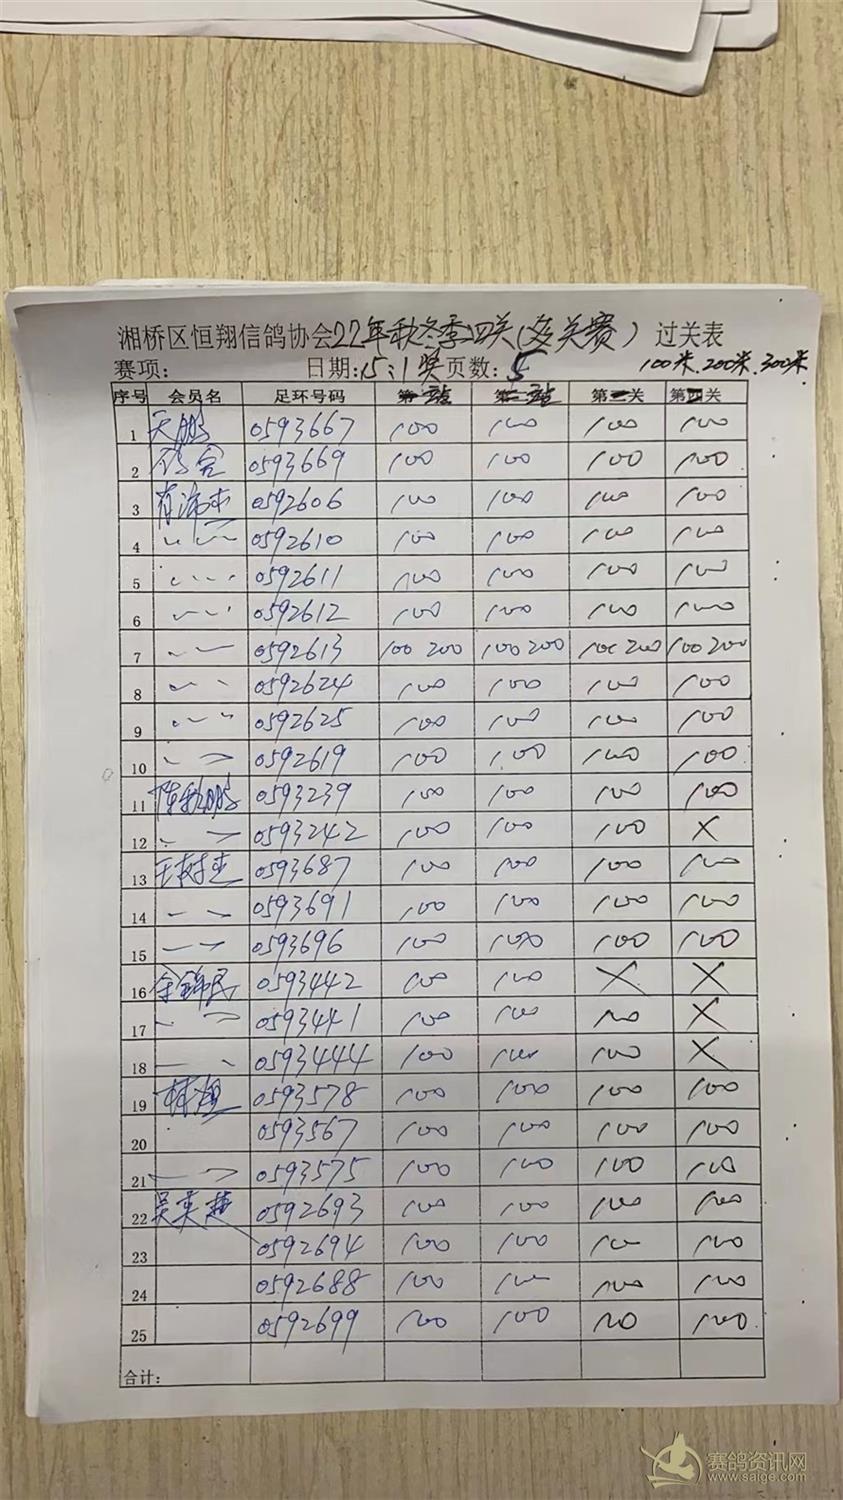 湘桥区恒翔信鸽协会22年秋冬季四关(多关赛) 过关表
赛项: 日期:15:1奖 页数:5 100米.200米.300米
序号 会员名 足环号码 第一站 第二站 第三关 第四关
1 天鹏 0593667 100 100 100 100
2 鸽舍 0593669 100 100 100 100
3 0592606 100 100 100 100
4 0592610 100 100 100 100
5 0592611 100 100 100 100
6 0592612 100 100 100 100
7 0592613 100 200 100 200 100 200 100 200
8 0592624 100 100 100 100
9 0592625 100 100 100 100
10 0592619 100 100 100 100
11 陈秋鹏 0593239 100 100 100 100
12 0593242 100 100 100 X
13 王树杰 0593687 100 100 100 100
14 0593691 100 100 100 100
15 0593696 100 100 100 100
16 余锦民 0593442 100 100 X X
17 0593441 100 100 100 X
18 0593444 100 100 100 X
19 0593578 100 100 100 100
20 0593567 100 100 100 100
21 0593575 100 100 100 100
22 吴奕楚 0592693 100 100 100 100
23 0592694 100 100 100 100
24 0592688 100 100 100 100
25 0592699 100 100 100 100
合计:
赛鸽资讯网
www.saige.com